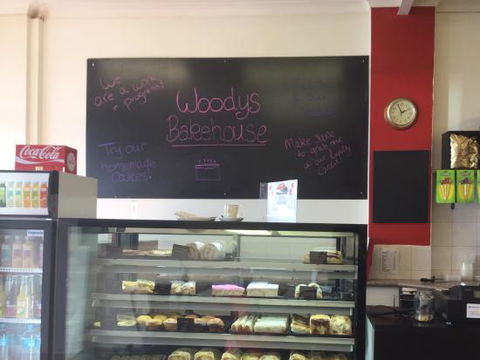 We
are a work
in progress!
Woodys
Bakehouse
Try our
homemade
Cakes!
Make sure
to grab one
of our loyalty
Cards!
Coca-Cola